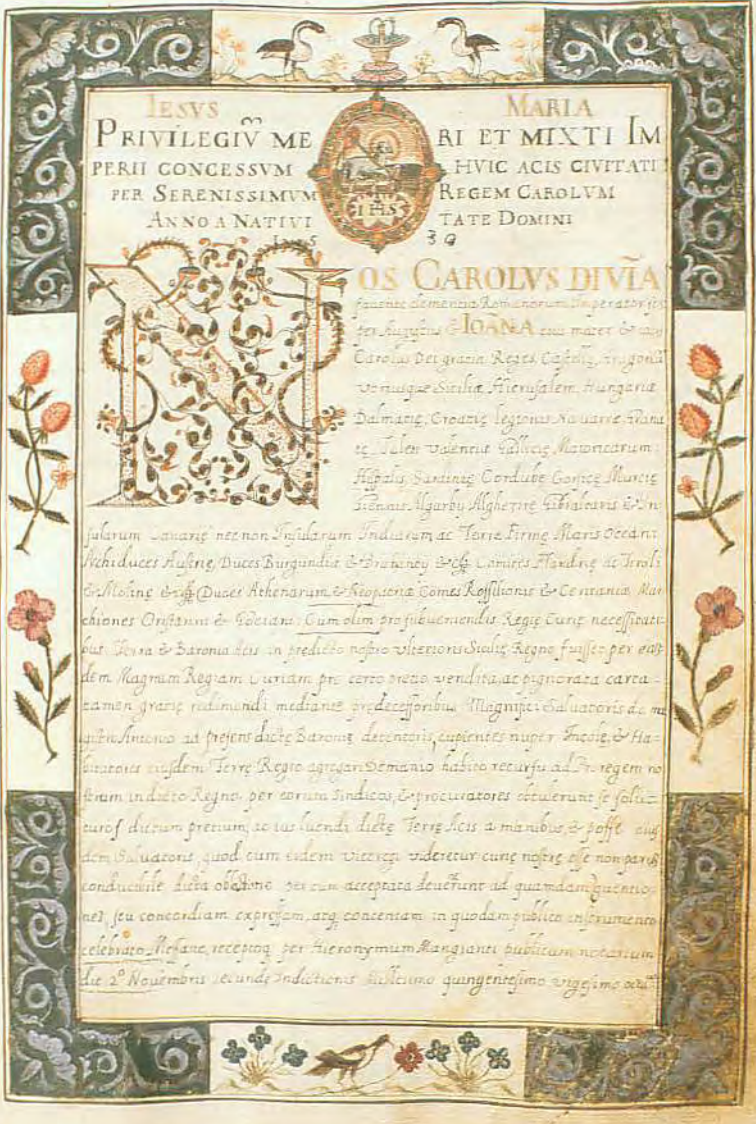 IESVS MARIA
PRIVILEGIṼ ME RI ET MIXTI IM
PERII CONCESSVM HVIC ACIS CIVITATI
PER SERENISSIMVM REGEM CAROLVM
ANNO A NATIVI TATE DOMINI
IHS
30
NOS CAROLVS DIVĪA
fauente clementia Romanorum Imperator
per Augustus & IOÃNA eius mater &
Carolus Dei gracia Reges Castellę, Aragonū
Vtriusque Siciliæ Hierusalem, Hungariæ
Dalmatię, Croatię legionis Nauarre Grana
tę, Tolen Valentiæ Gallicię Maioricarum
Hispalis, Sardinię Cordubę Corsicę Murcię
Giennis Algarbÿ Alghezirę Gibraltaris & In
sularum Canarię nec non Insularum Indiarum ac Terrę Firmę Maris Oceani
Archiduces Austrię, Duces Burgundiæ & Brabantÿ &c̃ Comites Flandrię ac Tiroli
& &c̃ Duces Athenarum & Neopatriæ Comes Rossilionis & Ceritaniæ Mar
chiones Oristanni & Gociani: Cum olim pro subueniendis Regię Curię necessitati
bus Terra & Baronia Acis in predicto nostro vlterioris Sicilię Regno fuisset per ean
dem Magnam Regiam Curiam pro certo precio vendita, ac pignorata carta
tamen gracię redimendi mediante predecessoribus Magnifici Saluatoris de ma
gistro Antonio ad presens dictę Baronię detentoris, cupientes nuper Incolę, & Ha-
bitatores eiusdem Terrę Regio agregari Demanio habito recursu ad Proregem no
strum in dicto Regno, per eorum Sindicos, & procuratores obtulerunt se solu
turos dictum pretium, ac ius luendi dictę Terrę Acis a manibus, & posse eius
dem Saluatoris, quod cum eidem Viceregi videretur curię nostrę esse non parum
conducibile dicta oblatione per eum acceptata deuenerunt ad quamdam
nem, seu concordiam expressam, atq; contentam in quodam publico instrumento
celebrato Messanę, receptoq; per Hieronymum Mangianti publicum notarium
die 2º Nouembris secundę Indictionis Millesimo quingentesimo vigesimo octa